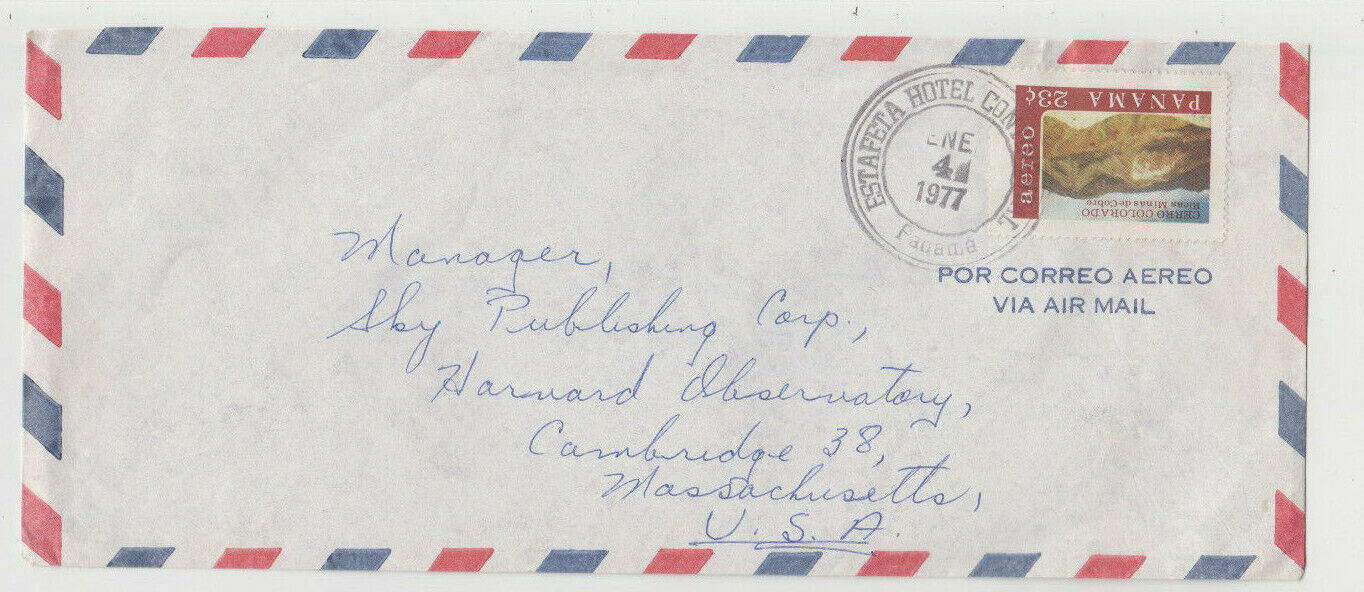 ESTAFETA HOTEL
ENE
4
1977
Panama
PANAMA 23¢
aereo
CERRO COLORADO
Ricas Minas de Cobre
POR CORREO AEREO
VIA AIR MAIL
Manager,
Sky Publishing Corp.,
Harvard Observatory,
Cambridge 38,
Massachusetts,
U.S.A.